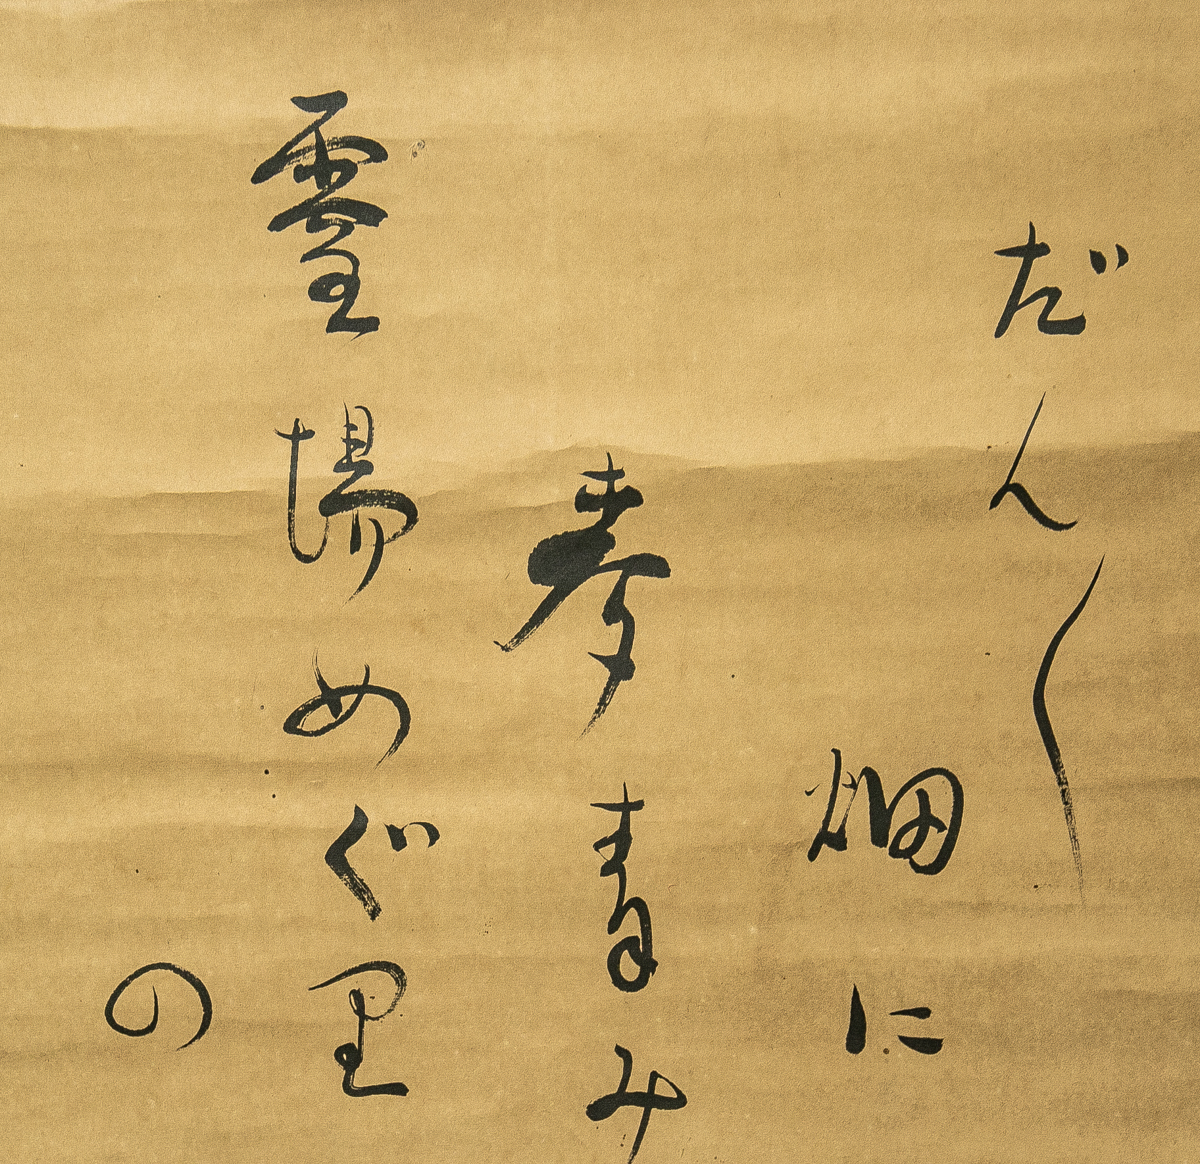 だん〱
畑に
麦青み
霊場めぐ里
の